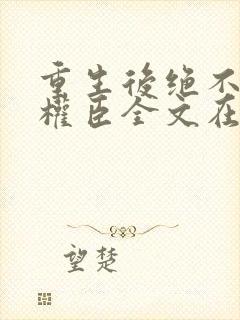 重生後绝不
權臣全文在
望楚